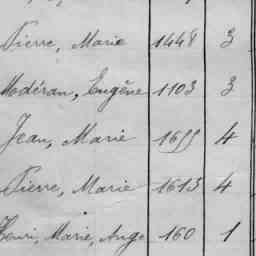 Pierre, Marie 1448 3
Modéran, Eugène 1103 3
Jean, Marie 1655 4
Pierre, Marie 1613 4
Henri, Marie, Ange 160 1